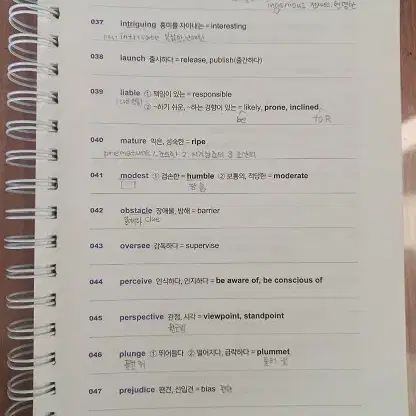 037 intriguing 흥미를 자아내는 = interesting
intricate 복잡한
038 launch 출시하다 = release, publish(출간하다)
039 liable ① 책임이 있는 = responsible
② ~하기 쉬운, ~하는 경향이 있는 = likely, prone, inclined
be
040 mature 익은, 성숙한 = ripe
premature
041 modest ① 겸손한 = humble ② 보통의, 적당한 = moderate
042 obstacle 장애물, 방해 = barrier
043 oversee 감독하다 = supervise
044 perceive 인식하다, 인지하다 = be aware of, be conscious of
045 perspective 관점, 시각 = viewpoint, standpoint
046 plunge ① 뛰어들다 ② 떨어지다, 급락하다 = plummet
047 prejudice 편견, 선입견 = bias 편견